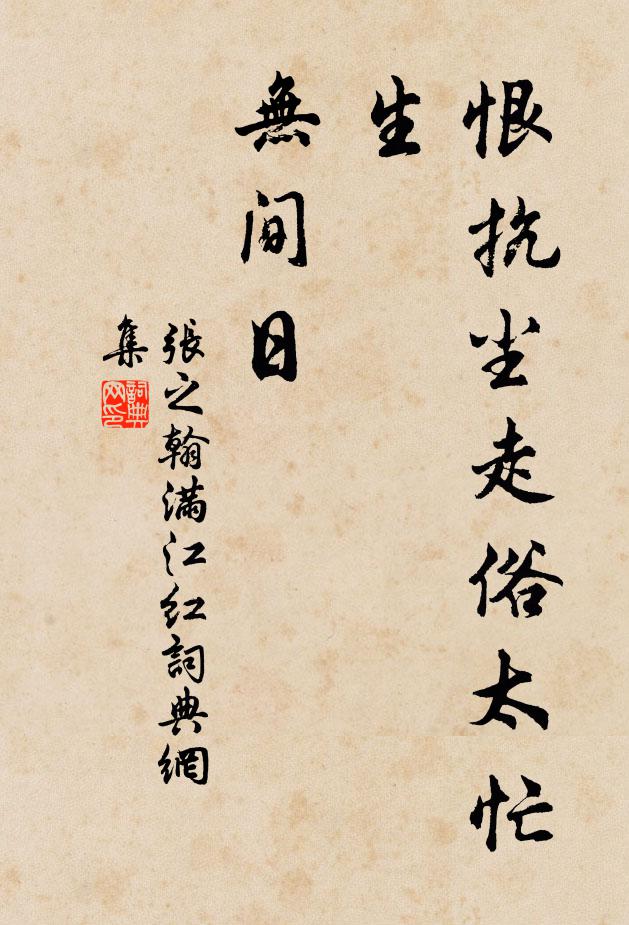 恨抗尘走俗太忙
生
無间日
張之翰满江红詞典網
集
詞典
网印